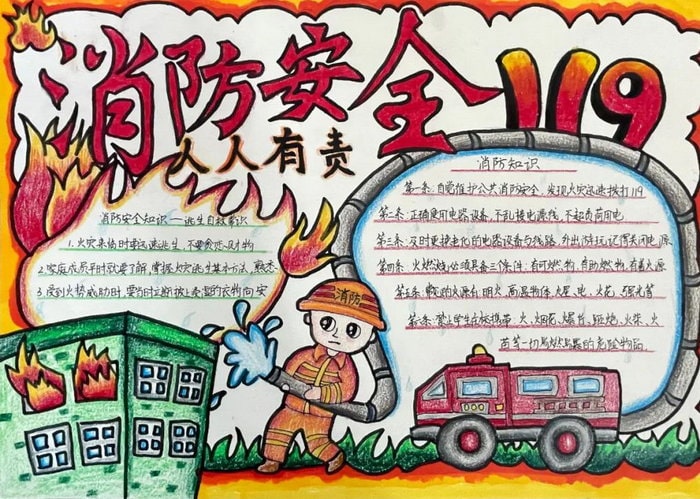 消防安全 119
人人有责
消防安全知识——逃生自救常识
1.火灾来临时要迅速逃生，不要贪恋财物
2.家庭成员平时就要了解，掌握火灾逃生基本方法，熟悉
3.受到火势威胁时，要当机立断披上浸湿的衣物向安
消防
消防知识
第一条：自觉维护公共消防安全，发现火灾迅速拨打119
第二条：正确使用电器设备，不乱接电源线，不超负荷用电
第三条：及时更换老化的电器设备与线路，外出游玩记得关闭电源
第四条：火燃烧必须具备三个条件：有可燃物，有助燃物，有着火源
第五条：火源有：明火，高温物体，火星，电火花，强光等
第六条：禁止学生携带火，烟花，爆竹，砸炮，火柴，火
等一切易燃易爆的危险物品